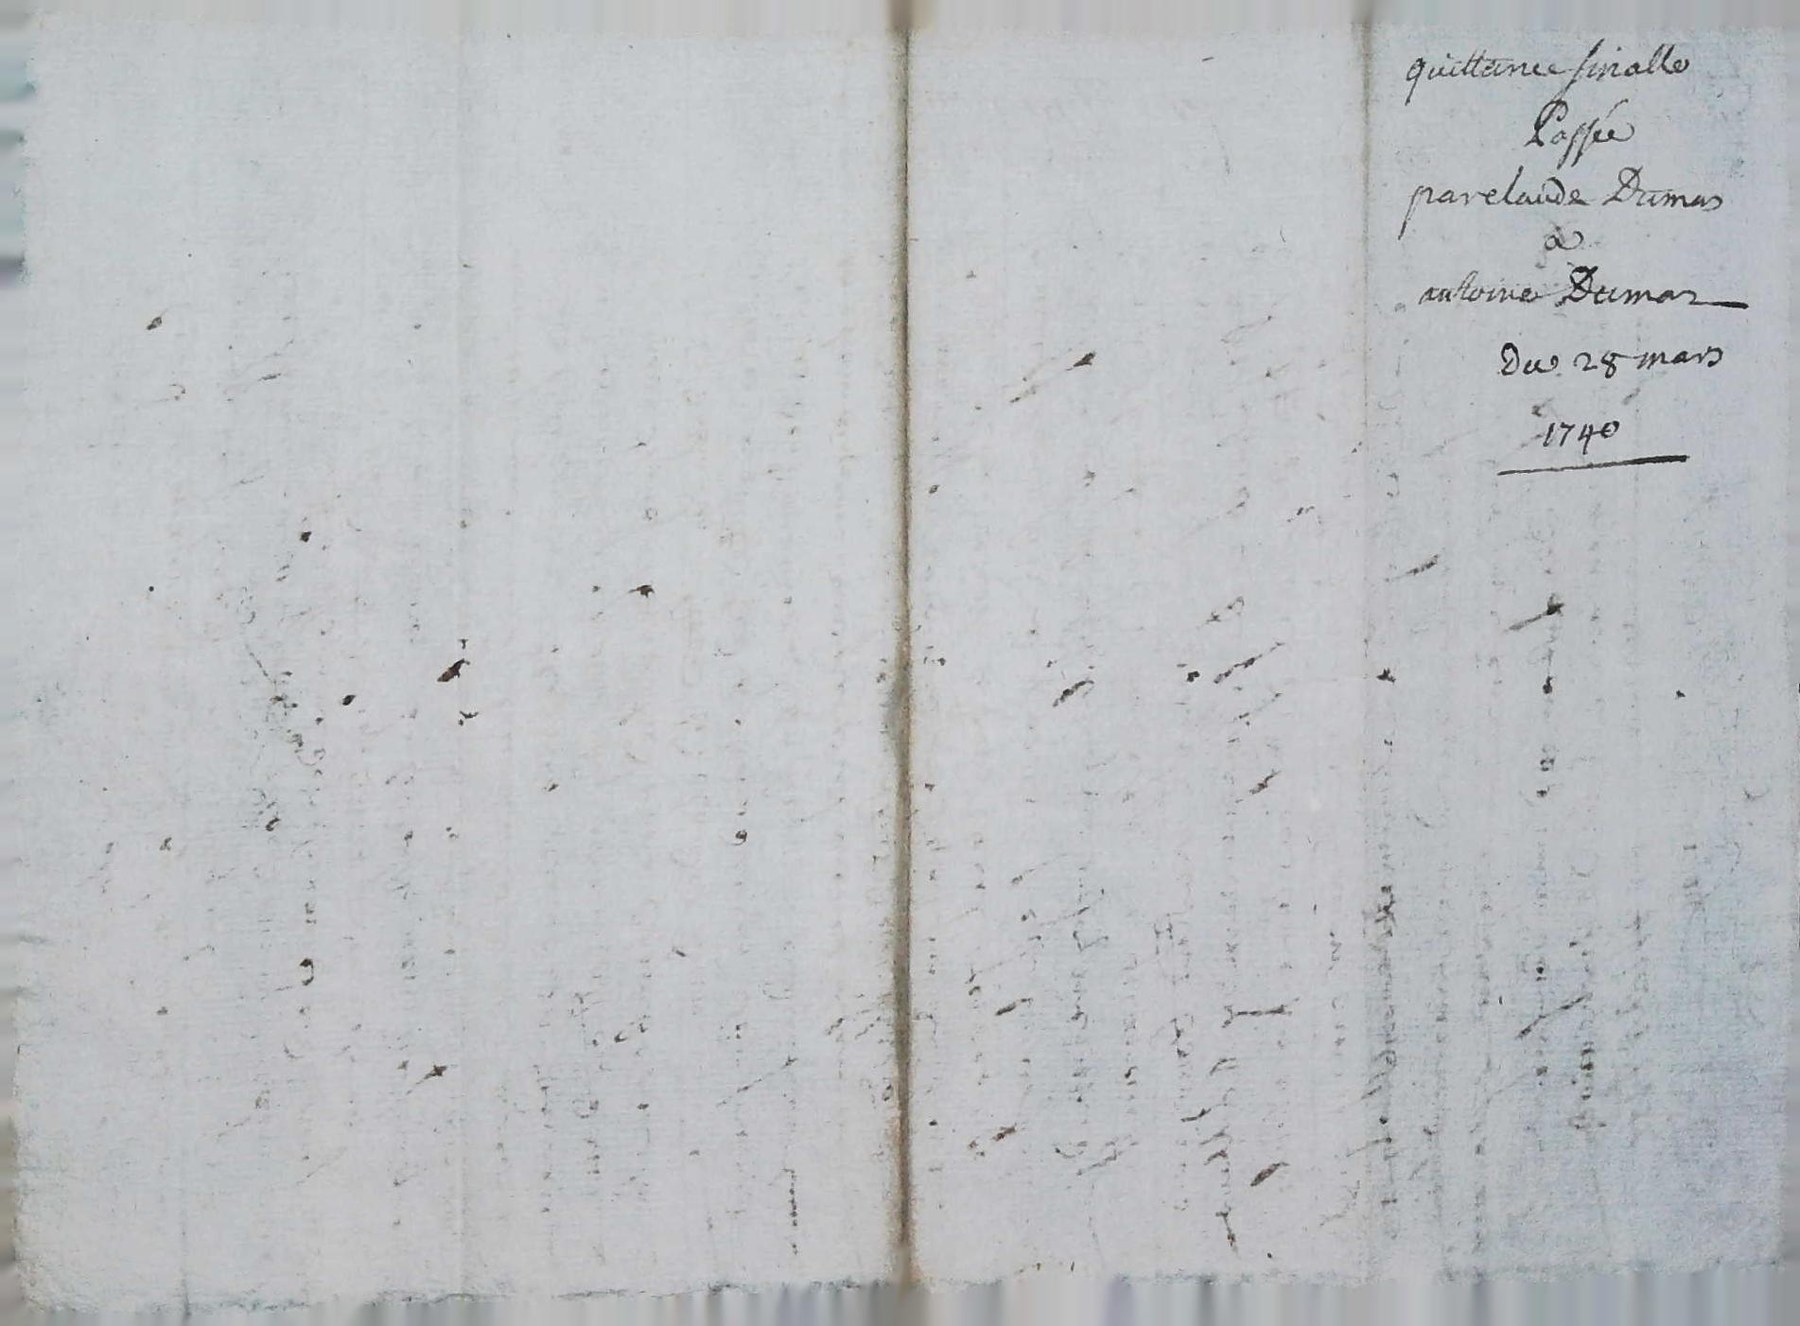 quittance finalle
Passée
par claude Dumas
a
antoine Dumas
Du 28 mars
1740